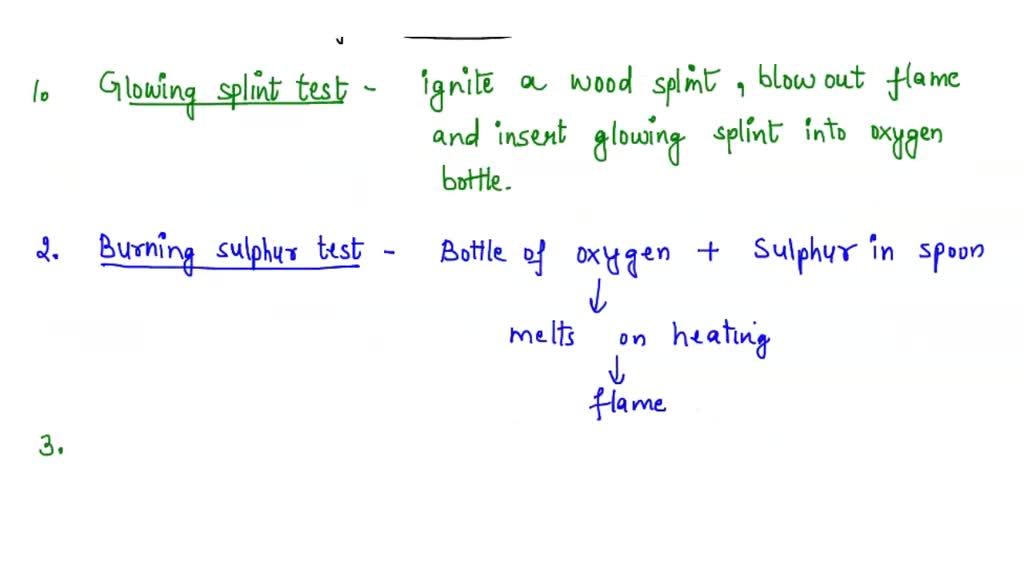 1. Glowing splint test - ignite a wood splint, blow out flame
and insert glowing splint into oxygen
bottle.
2. Burning sulphur test - Bottle of oxygen + Sulphur in spoon
↓
melts on heating
↓
flame
3.